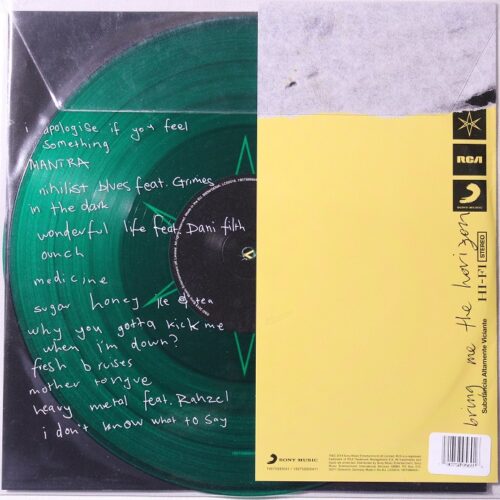 i apologise if you feel
something
MANTRA
nihilist blues feat. Grimes
in the dark
wonderful life feat. Dani filth
ouch
medicine
sugar honey ice & tea
why you gotta kick me
when i'm down?
fresh bruises
mother tongue
heavy metal feat. Rahzel
i don't know what to say
RCA
SONY MUSIC
HI-FI STEREO
bring me the horizon
Substancia Altamente Viciante
SONY MUSIC